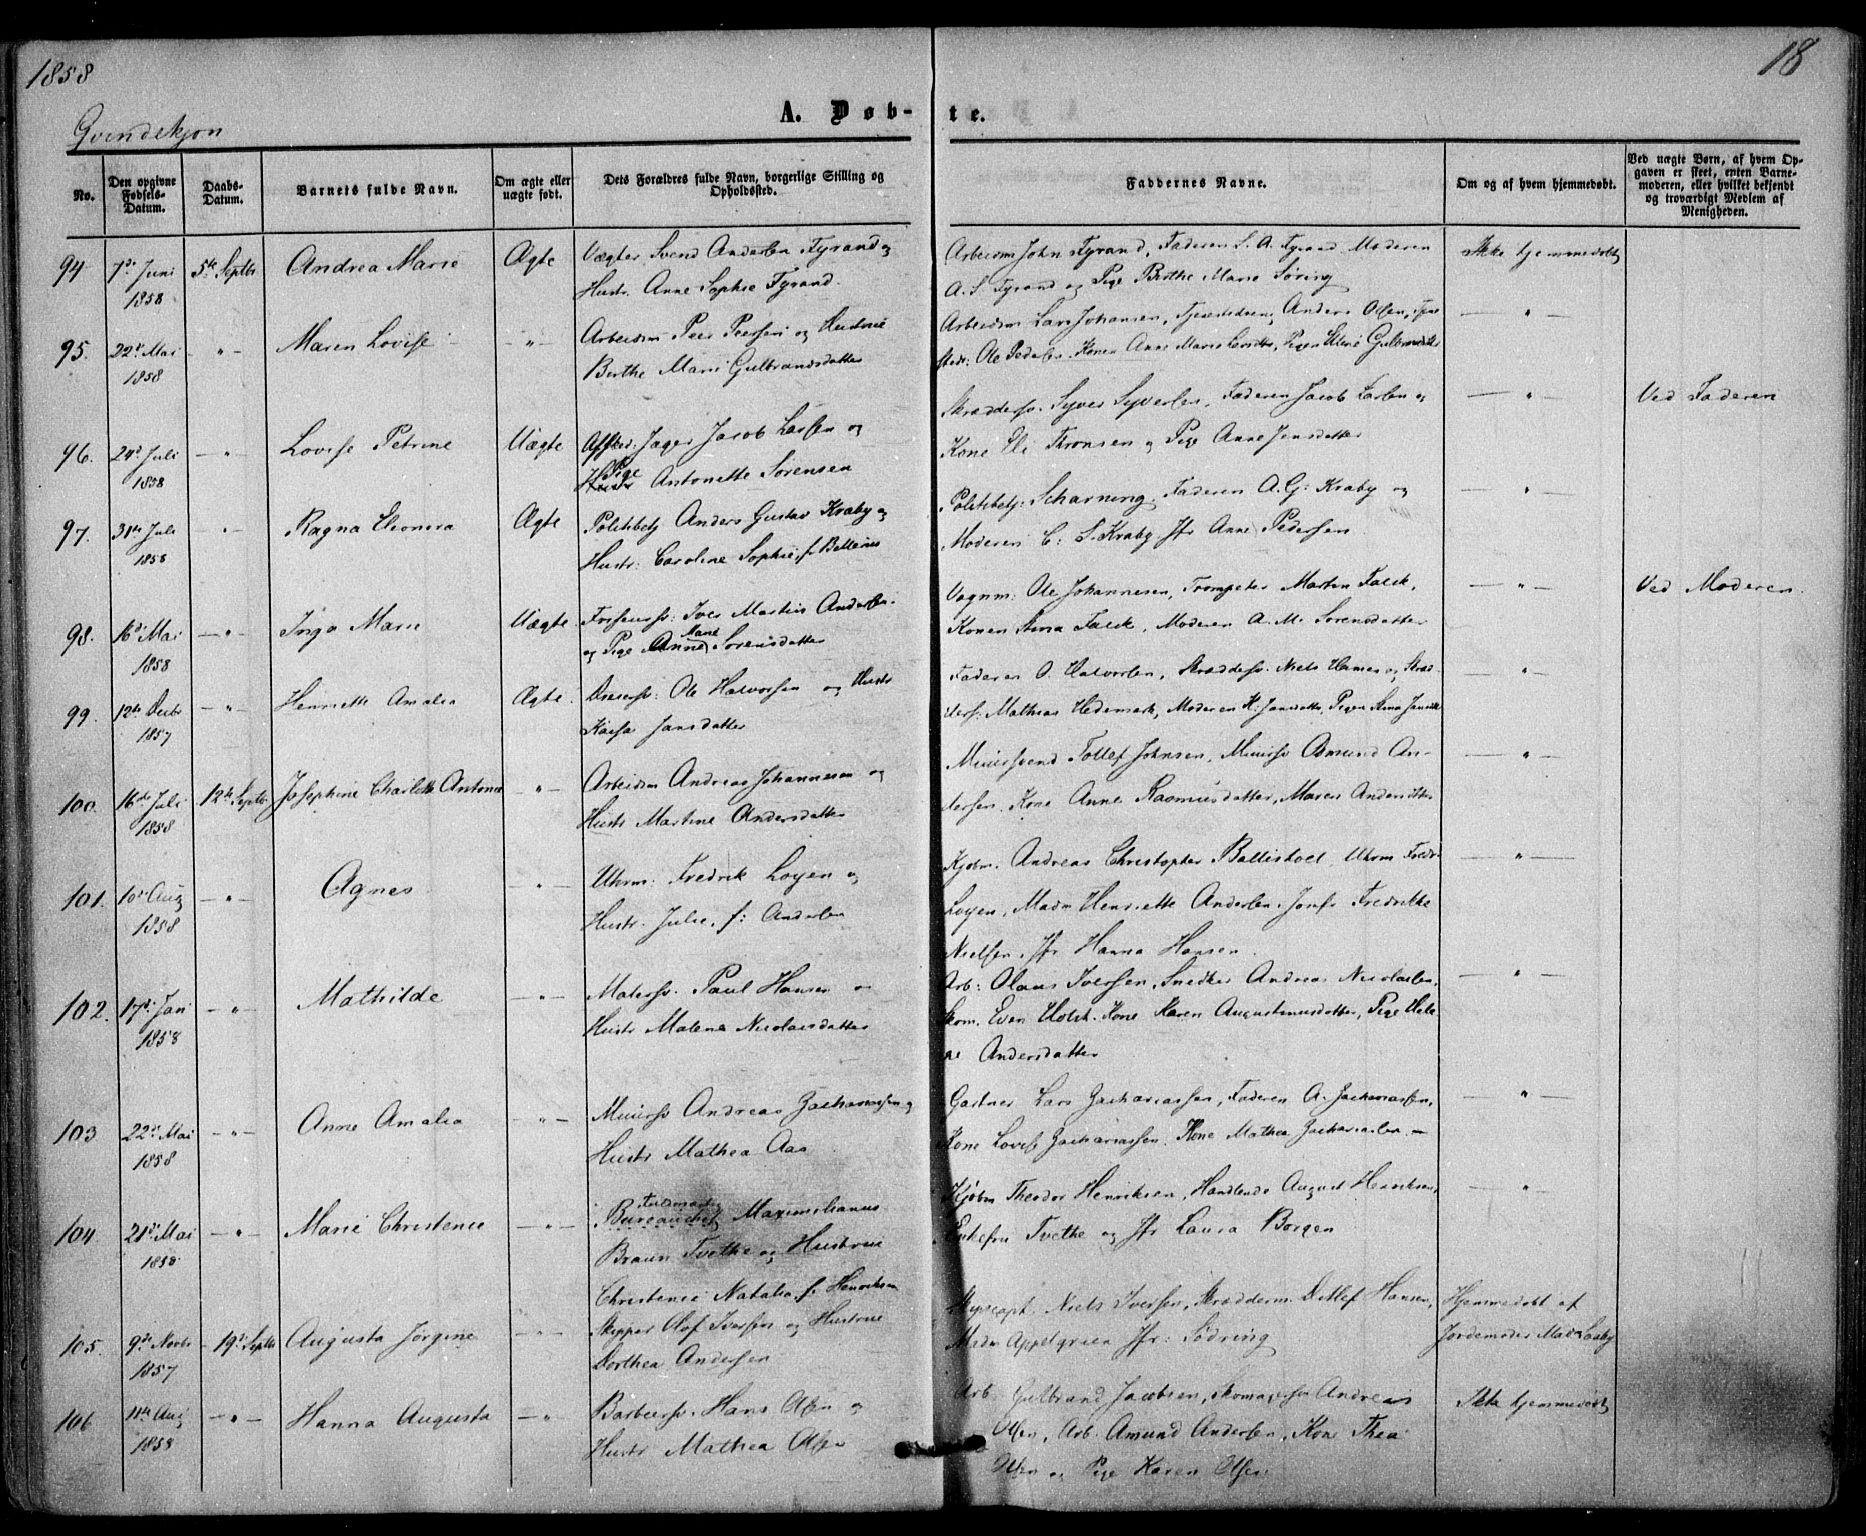 1858
18
A. Døb-te.
Qvindekjøn
No.
Den opgivne Fødsels-Datum.
Daabs-Datum.
Barnets fulde Navn.
Om ægte eller uægte født.
Dets Forældres fulde Navn, borgerlige Stilling og Opholdssted.
Faddernes Navne.
Om og af hvem hjemmedøbt.
Ved uægte Børn, af hvem Opgaven er skeet, enten Barnemoderen, eller hvilket bekjendt og troværdigt Medlem af Menigheden.
94 7de Juni 1858 5te Septbr Andrea Marie Ægte
Vægter Svend Andersen Fyrand og
Hustr. Anne Sophie Fyrand.
Arbeidsm John Fyrand, Faderen S. A. Fyrand Moderen
A. S. Fyrand og Pige Berthe Marie Søring
Ikke hjemmedøbt
95. 22de Mai 1858 — " — Maren Lovise — " —
Arbeidsm Peer Peersen og Hustrue
Berthe Marie Gulbrandsdatter
Arbeidsm Lars Johansen, Anders Olsen,
Ole Pedersen. Konen Anne Marie
— " —
96. 24de Juli 1858 — " — Lovise Petrine Uægte
Afsked: Jæger Jacob Larsen og
Pige Antonette Sørensen
Skræddersv. Syver Syversen, Faderen Jacob Larsen og
Kone Eli Thronsen og Pige Anne Jensdatter
— " —
Ved Faderen
97. 31te Juli 1858 " Ragna Eleonora Ægte
Politibetj Anders Gustav Kraby og
Hustr: Caroline Sophie, f.
Politibetj. Scharning. Faderen A. G: Kraby og
Moderen C: S. Kraby. Jfr Anne Pedersen
— " —
98. 16de Mai 1858 — " — Inga Marie Uægte.
Iver Martin Andersen.
og Pige Anne Marie Sørensdatter
Vognm: Ole Johannesen, Trompeter Morten Falck,
Konen Stina Falck, Moderen A. M. Sørensdatter
— " —
Ved Moderen.
99. 12te Decbr 1857 — " — Henriette Amalia Ægte.
Dreiersv: Ole Halvorsen og Hustr
Kaisa Jansdatter
Faderen O. Halvorsen, Skræddersv. Niels og Skræd
dersv: Mathias Hedemark, Moderen K: Jansdatter, Pigen Stina
— " —
100. 16de Juli 1858 12te Septbr Josephine Charlotte Antonie — " —
Arbeidsm Andreas Johannesen og
Hustr Martine Andersdatter
Muursvend Tollef Johnsen, Muursv Asmund An-
dersen. Kone Anne Rasmusdatter, Maren Andersdatter
— " —
101. 10de Aug 1858 — " — Agnes "
Uhrm: Fredrik Loyen og
Hustr. Julie, f: Andersen
Kjøbm. Andreas Christopher Uhrm Fredr
Loyen, Madm Henriette Andersen. Jomfr Fredrikke
Nielsen, Jfr Hanna Hansen.
— " —
102. 17de Jan 1858 — " — Mathilde — " —
Malersv. Paul Hansen og
Hustr Malena Nicolaisdatter
Arb: Olaus Iversen, Snedker Andreas Nicolaisen,
Skom. Even Holst. Kone Karen Augustinusdatter, Pige Hele
ne Andersdatter
— " —
103 22de Mai 1858 — " — Anne Amalia — " —
Muursv Andreas Zachariassen og
Hustr Mathea Aas
Gartner Lars Zachariassen, Faderen A. Zachariassen,
Kone Lovise Zachariassen. Kone Mathea Zachariassen —
"
104 21de Mai 1858 — " — Marie Christence — " —
Fuldmægtig
Maximilianus
Braun Tvethe og Hustrue
Christence Natalia, f. Henriksen
Kjøbm Theodor Henriksen, Handlende August Henriksen,
Enkefru Tvethe og Jfr Laura Borgen
— " —
105. 9de Novbr 1857 19de Septbr Augusta Jørgine — " —
Skipper Olof Iversen og Hustrue
Dorthea Andersen
Skipscapt. Niels Iversen, Skrædderm. Detlef Hansen,
Madm Appelgreen Jfr: Södring
Hjemmedøbt af
Jordemoder Mad
106 11te Aug 1858 — " — Hanna Augusta — "
Barbeersv. Hans Olsen og
Hustr Mathea Olsen
Arb Gulbrand Jacobsen, Skomagersv Andreas
Olsen, Arb. Amund Andersen, Kone Thea
Olsen og Pige Karen Olsen
Ikke hjemmedøbt